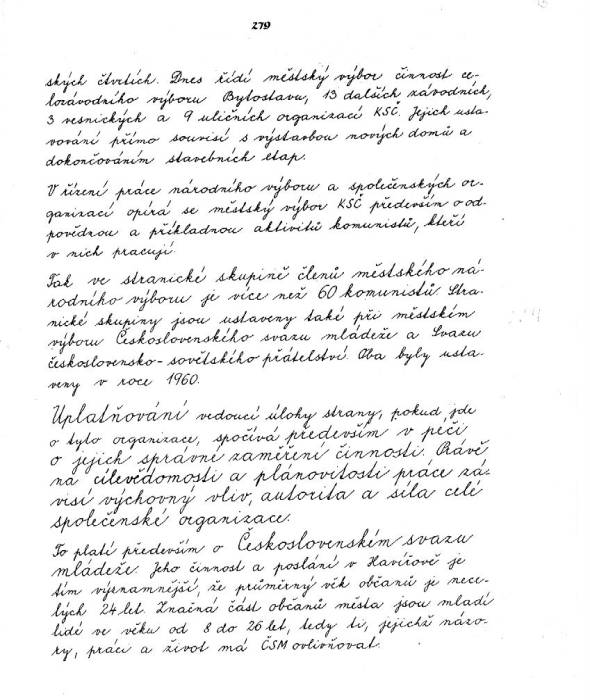 279
ských čtvrtích. Dnes řídí městský výbor činnost ce-
lozávodního výboru Bytostavu, 13 dalších závodních,
3 vesnických a 9 uličních organizací KSČ. Jejich usta-
vování přímo souvisí s výstavbou nových domů a
dokončováním stavebních etap.
V řízení práce národního výboru a společenských or-
ganizací opírá se městský výbor KSČ především o od-
povědnou a příkladnou aktivitu komunistů, kteří
v nich pracují
Tak ve stranické skupině členů městského ná-
rodního výboru je více než 60 komunistů. Stra-
nické skupiny jsou ustaveny také při městském
výboru Československého svazu mládeže a Svazu
československo-sovětského přátelství. Oba byly usta-
veny v roce 1960.
Uplatňování vedoucí úlohy strany, pokud jde
o tyto organizace, spočívá především v péči
o jejich správné zaměření činnosti. Právě
na cílevědomosti a plánovitosti práce zá-
visí výchovný vliv, autorita a síla celé
společenské organizace.
To platí především o Československém svazu
mládeže. Jeho činnost a poslání v Havířově je
tím významnější, že průměrný věk občanů je nece-
lých 24 let. Značná část občanů města jsou mladí
lidé ve věku od 8 do 26 let, tedy ti, jejichž názo-
ry, práci a život má ČSM ovlivňovat.